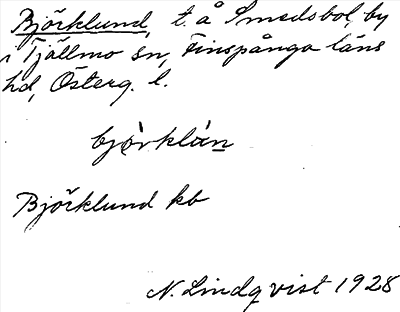 Björklund, t. å Smedsbol, by
i Tjällmo sn, Finspånga läns
hd, Österg. l.
bjö̀rklá̀n
Björklund kb
N. Lindqvist 1928